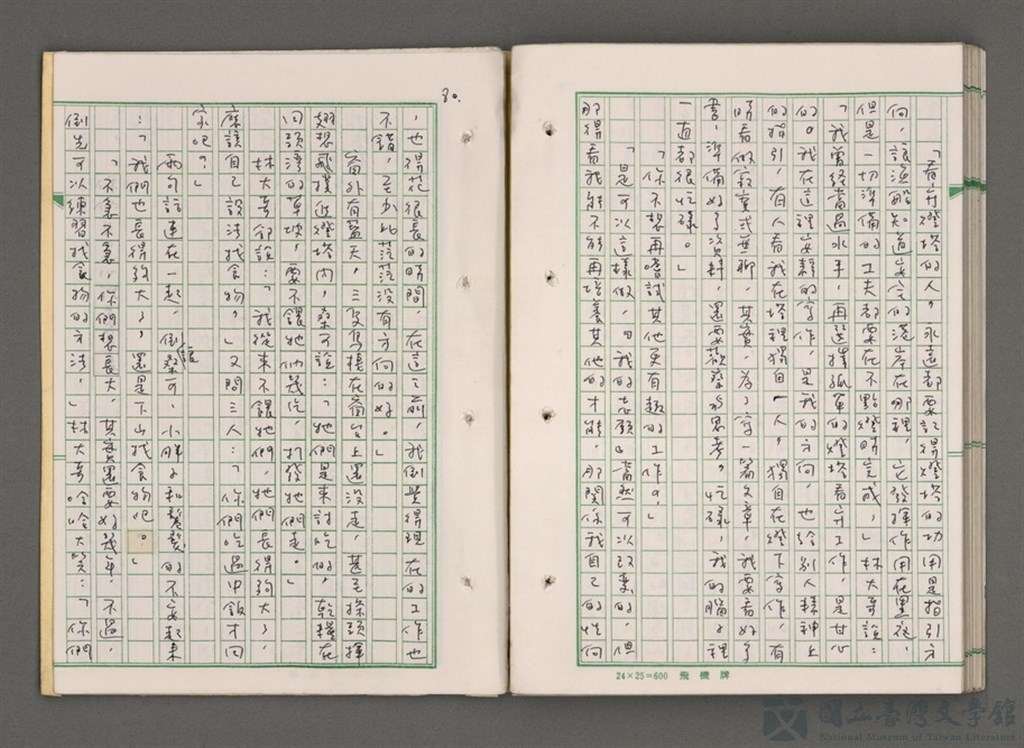 「看守燈塔的人，永遠都要記得燈塔的功用是指引方
向，讓漁船知道安全的港岸在哪裡，它發揮作用在黑夜，
但是一切準備的工夫都要在不點燈時完成，」林大哥說：
「我曾經當過水手，再選擇孤單的燈塔看守工作，是甘心
的。我在這裡安靜的寫作，是我的方向，也給別人精神上
的指引，有人看我在塔裡獨自一人，獨自在燈下寫作，有
時看做寂寞或無聊，其實，為了寫一篇文章，我要看好多
書，準備好多資料，還要觀察與思考。忙碌，我的腦子裡
一直都很忙碌。」
「你不想再嚐試其他更有趣的工作？」
「是可以這樣做，『我的志願』當然可以改變的，但
那得看我能不能再培養其他的才能，那關係我自己的性向
80.
，也得花很長的時間，在這之前，我倒覺得現在的工作也
不錯，至少比茫茫沒有方向的好。」
窗外有藍天，三隻鳥棲在窗台上還沒走，甚至探頭揮
翅想飛撲進燈塔內，桑可說：「牠們是來討吃的，乾糧在
回頭灣的草坡，要不餵牠們幾片，打發牠們走。」
林大哥卻說：「我從來不餵牠們，牠們長得夠大了，
應該自己設法找食物。」又問三人：「你們吃過中飯才回
家吧？」
兩句話連在一起，倒讓桑可、小胖子和鬈髮的不安起來
：「我們也長得夠大了，還是下山找食物吧。」
「不急不急，你們想長大，其實還要好幾年，不過，
倒先可以練習找食物的方法，」林大哥哈哈大笑：「你們
24×25=600 飛機牌
國立臺灣文學館
National Museum of Taiwan Literature